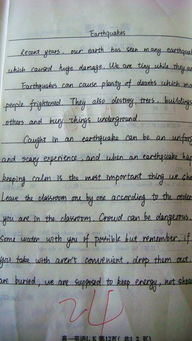 Earthquakes
Recent years, our earth has seen many earthquak
which caused huge damage. We are tiny while they are
Earthquakes can cause plenty of deaths which ma
people frightened. They also destroy trees, buildings
others and bury things underground.
Caught in an earthquake can be an unforg
and scary experience, and when an earthquake hap
keeping calm is the most important thing we
Leave the classroom one by one according to the order
you are in the classroom. Crowd can be dangerous.
some water with you if possible but remember, if
you take with aren't convenient, drop them out.
are buried, we are supposed to keep energy, not shou
24